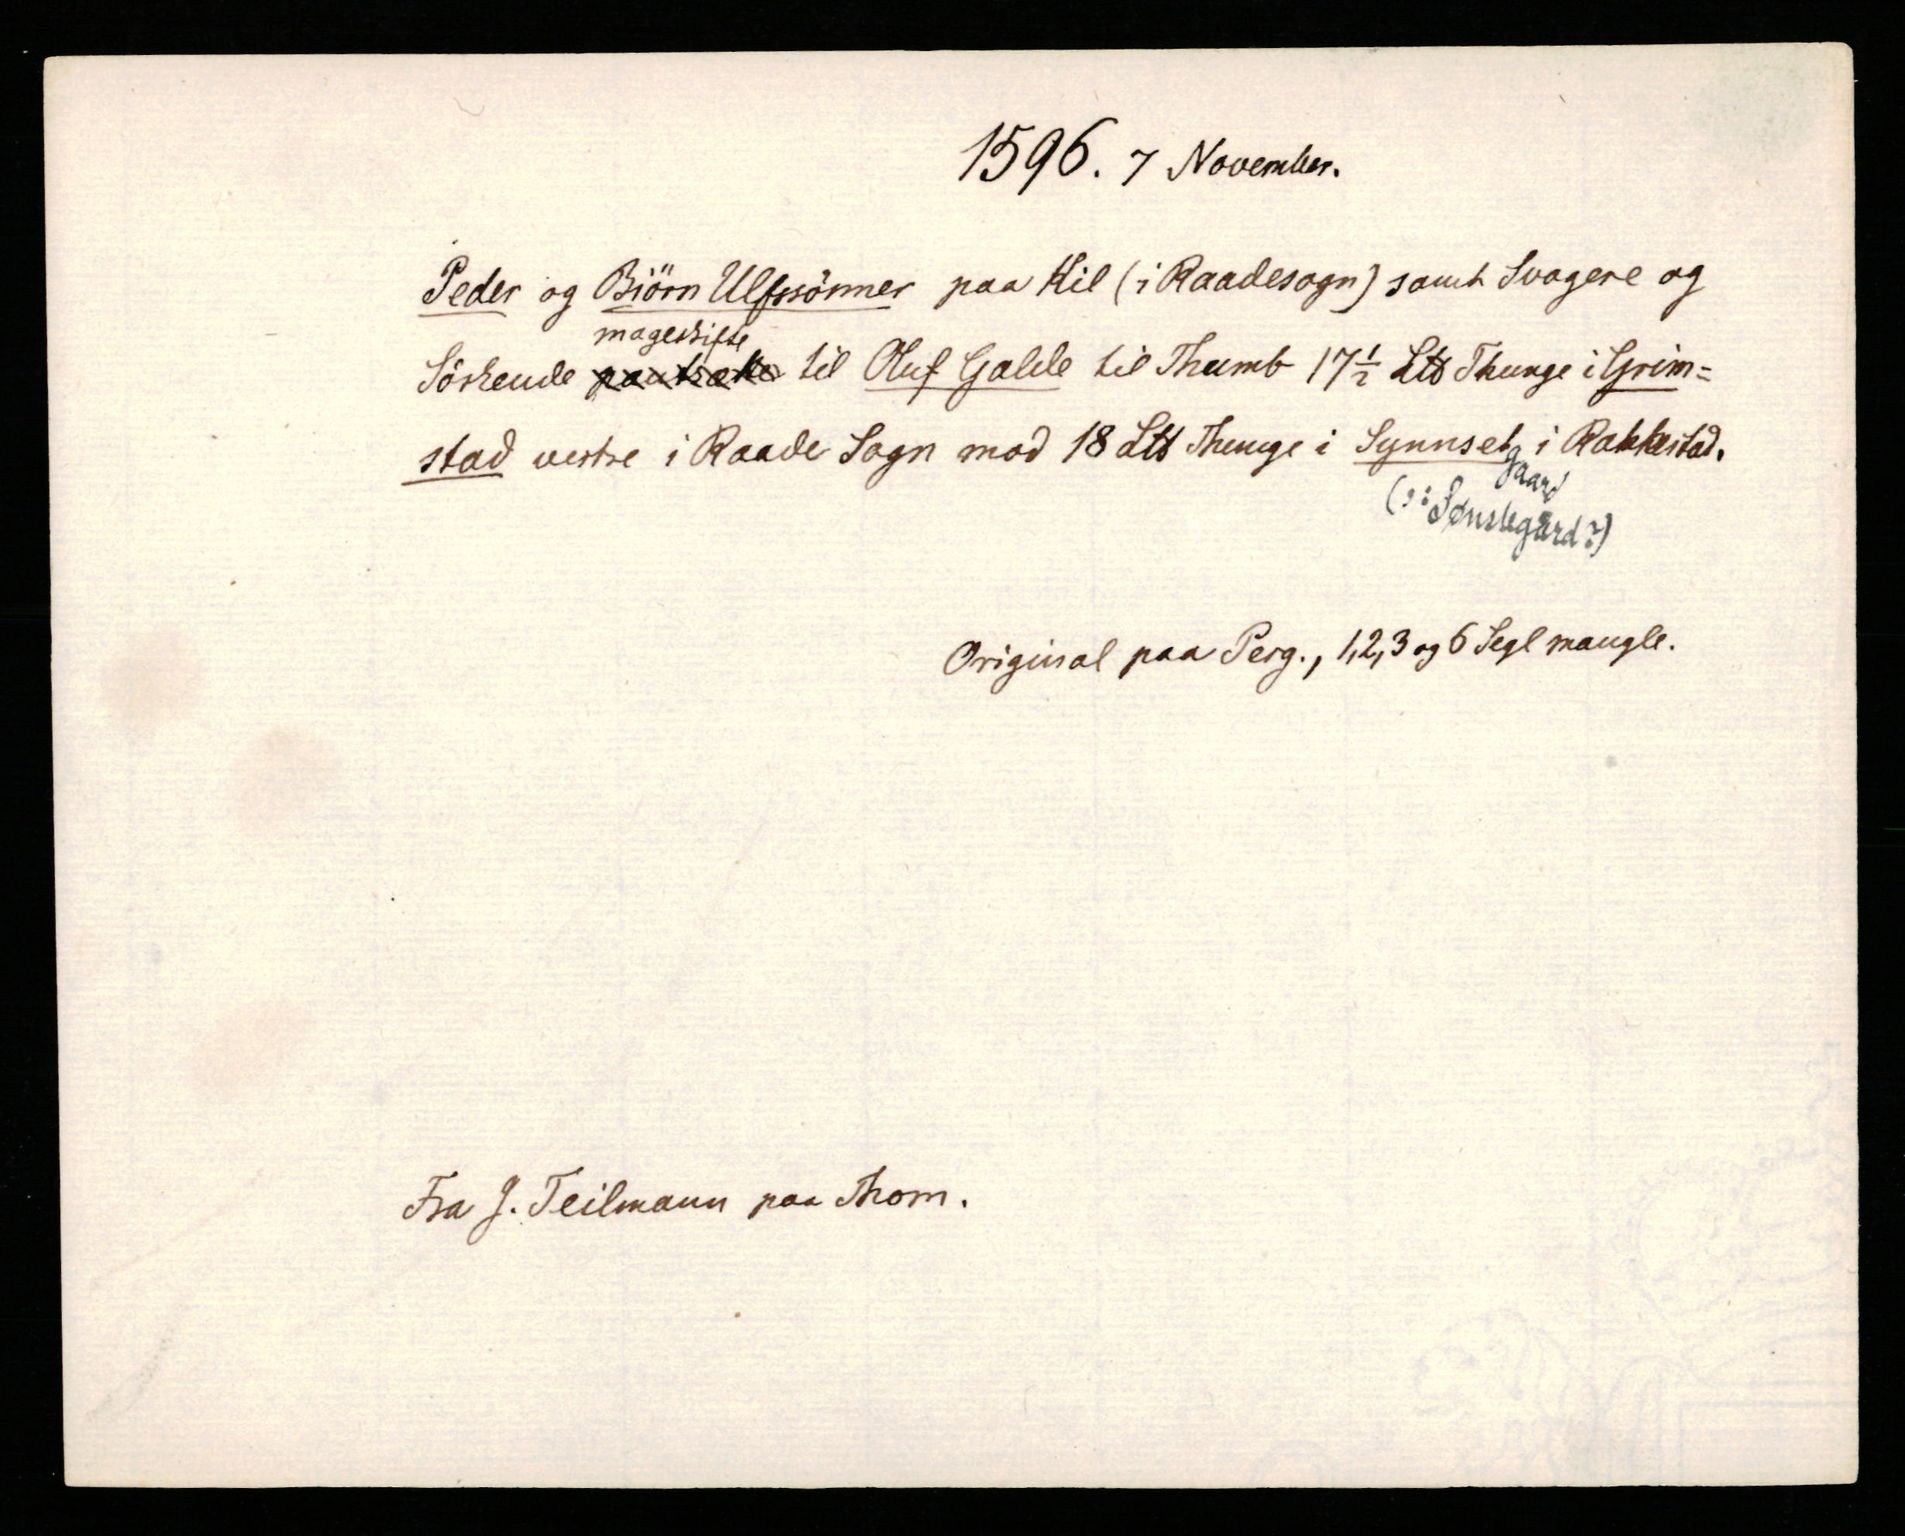 1596. 7 November.
Peder og Biörn Ulfssönner paa Kil (i Raadesogn) samt Svogere og
mageskifte
Söskende pantsætte til Oluf Galde til Thumb 17 1/2 L℔ Thunge i Grim=
stad vestre i Raade Sogn mod 18 L℔ Thunge i Synnset i Rakkestad.
gaard
(ɔ: Sønstegård?)
Original paa Perg., 1,2,3 og 6 Segl mangle.
Fra J. Teilmann paa Thom.